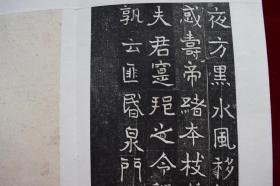 夜方黑水風移
或壽帝緒本枝
夫君寔挹之令
孰云匪昬泉門